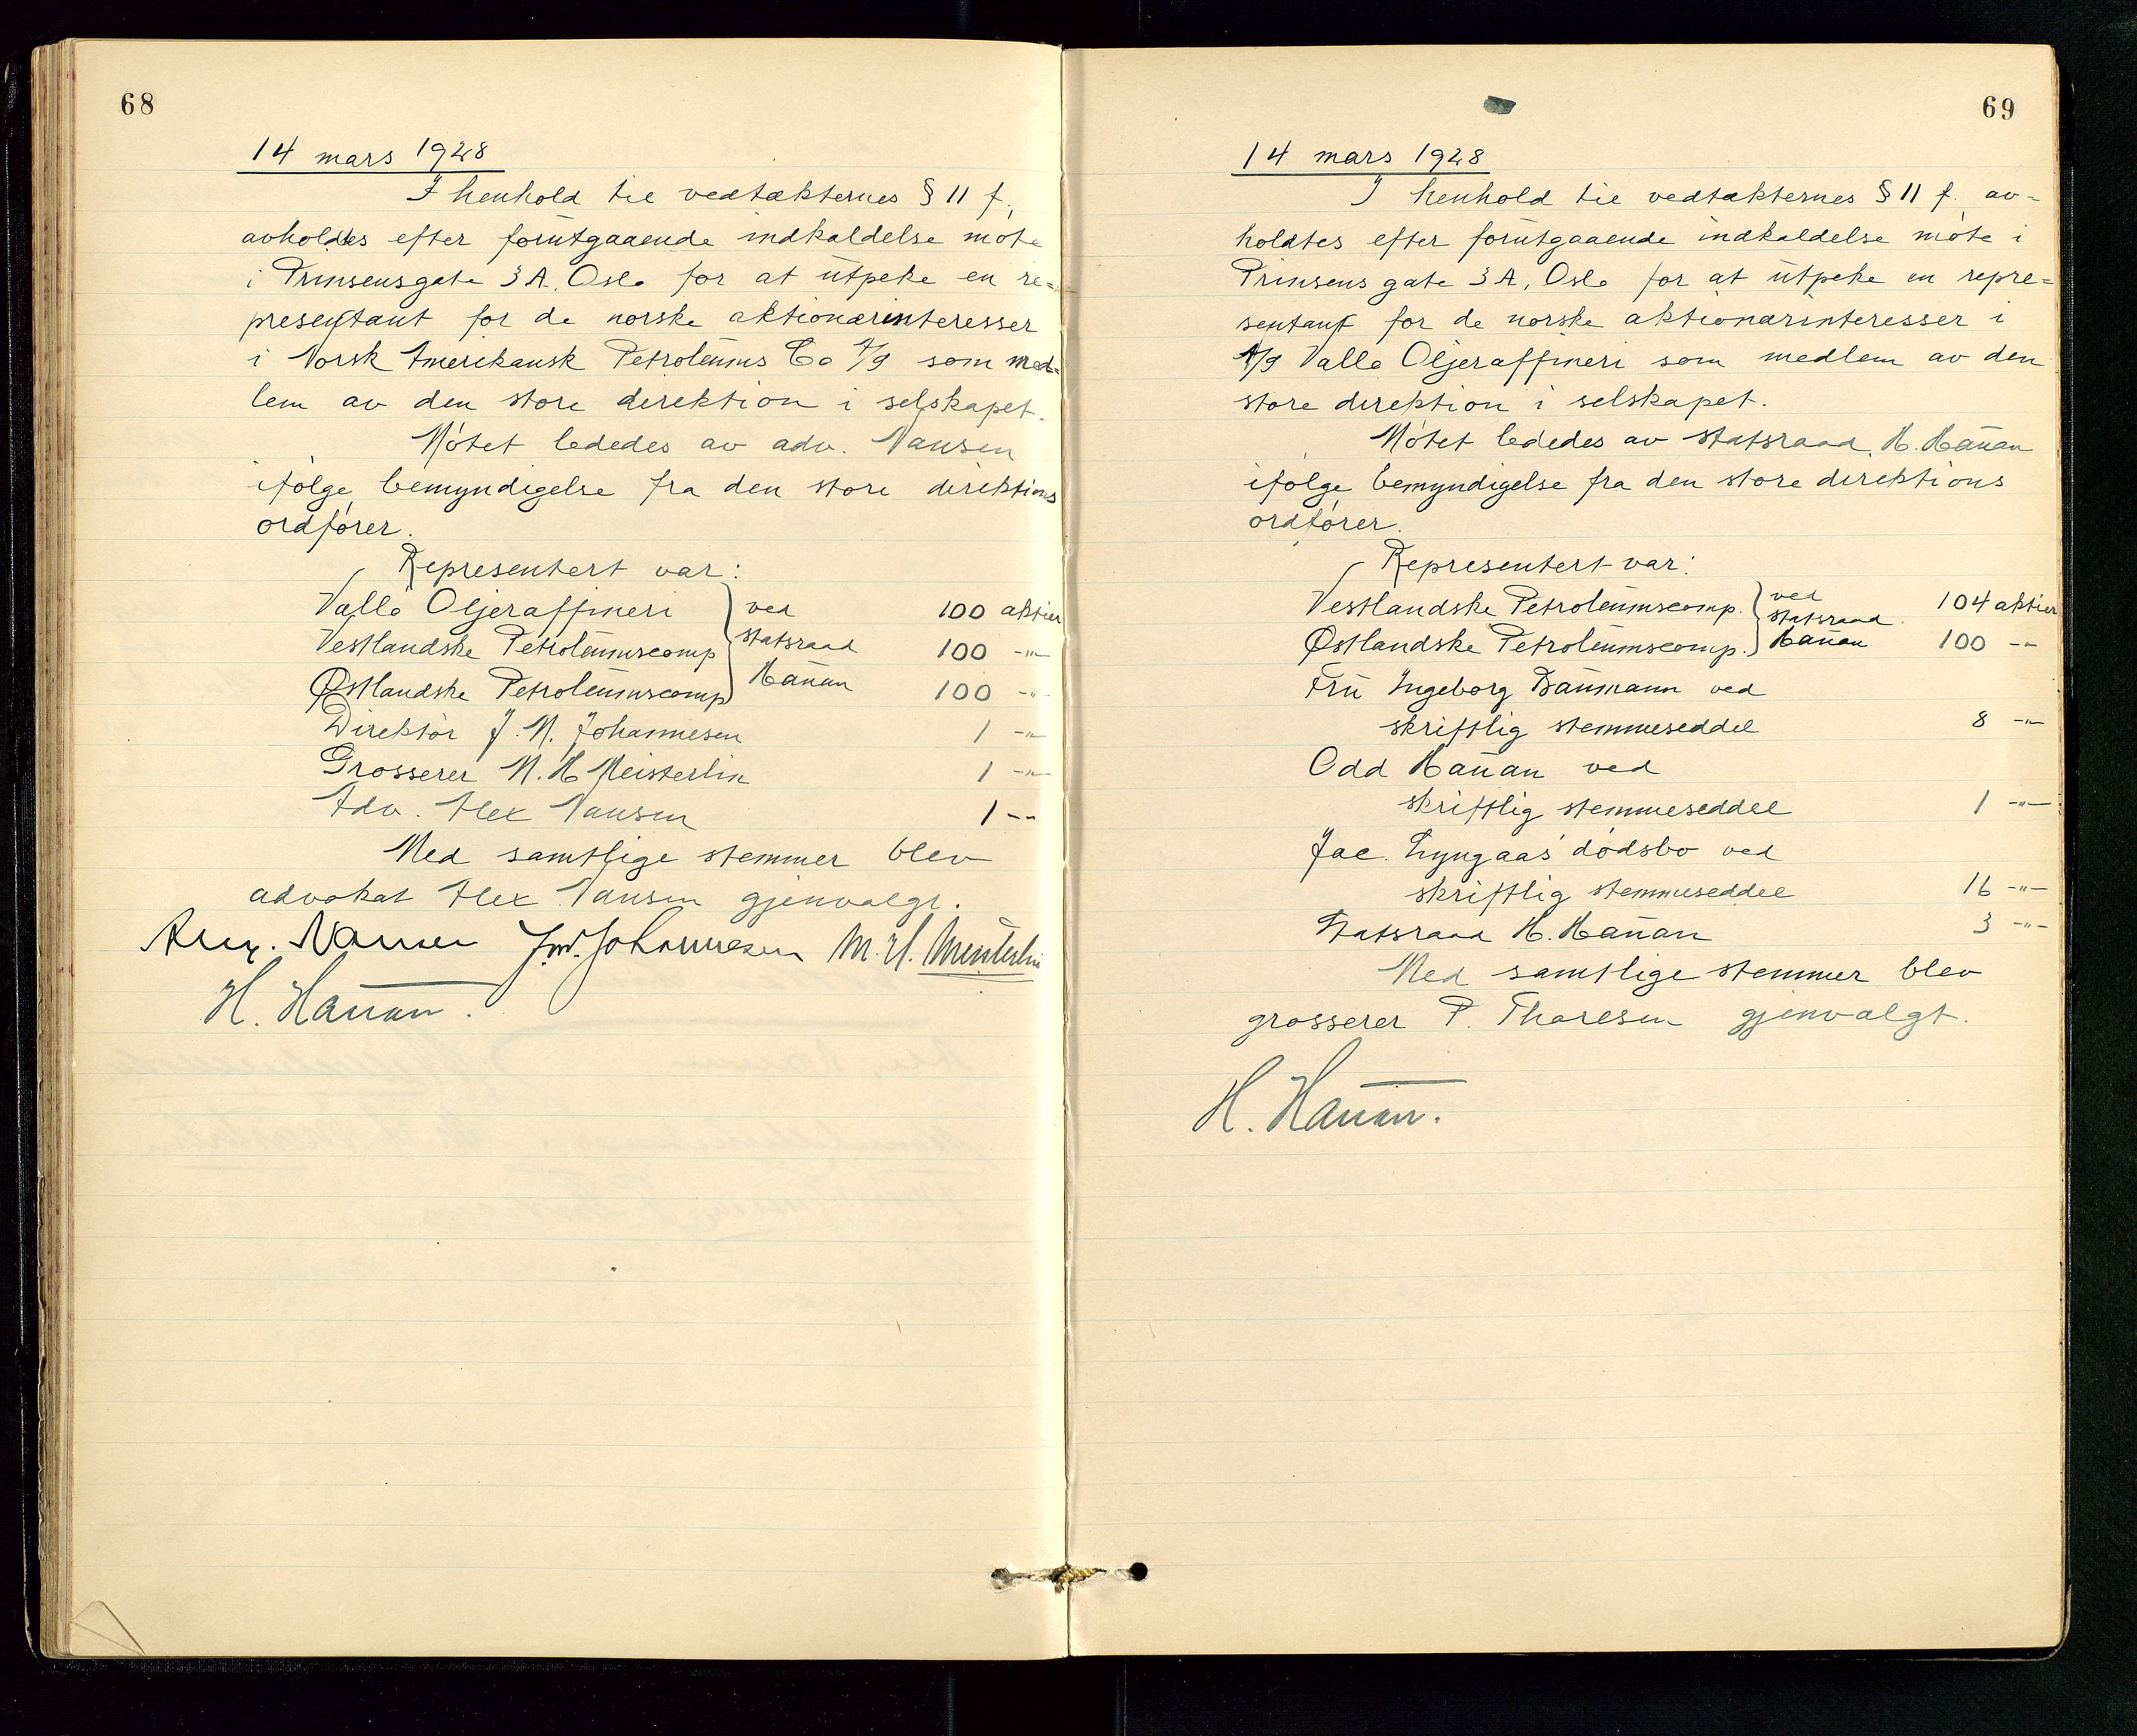 68
14 mars 1928
I henhold til vedtækternes § 11 f,
avholdes efter forutgaaende indkaldelse møte
i Prinsensgate 3A, Oslo for at utpeke en re=
presentant for de norske aktionærinteresser
i Norsk Amerikansk Petroleums Co A/S som med=
lem av den store direktion i selskapet.
Møtet lededes av adv. Nansen
ifølge bemyndigelse fra den store direktions
ordfører.
Representert var:
Vallø Oljeraffineri } ved 100 aktier
Vestlandske Petroleumscomp } statsraad 100 -"-
Østlandske Petroleumscomp } Hauan 100 -"-
Direktør J. M. Johannesen 1 -"-
Grosserer M. H Meisterlin 1 -"-
Adv. Alex Nansen 1 --
Med samtlige stemmer blev
advokat Alex Nansen gjenvalgt.
Alex. Nansen J.M. Johannesen M. H. Meisterlin
H. Hauan.
69
14 mars 1928
I henhold til vedtækternes § 11 f. av=
holdtes efter forutgaaende indkaldelse møte i
Prinsens gate 3A, Oslo for at utpeke en repre=
sentant for de norske aktionærinteresser i
A/S Vallø Oljeraffineri som medlem av den
store direktion i selskapet.
Møtet lededes av statsraad H. Hauan
ifølge bemyndigelse fra den store direktions
ordfører.
Representert var:
Vestlandske Petroleumscomp. } ved statsraad 104 aktier
Østlandske Petroleumscomp. } Hauan 100 -"-
Fru Ingeborg Baumann ved
skriftlig stemmeseddel 8 -"-
Odd Hauan ved
skriftlig stemmeseddel 1 -"-
Jac. Lyngaas' dødsbo ved
skriftlig stemmeseddel 16 -"-
Statsraad H. Hauan 3 -"-
Med samtlige stemmer blev
grosserer P. Thoresen gjenvalgt.
H. Hauan.